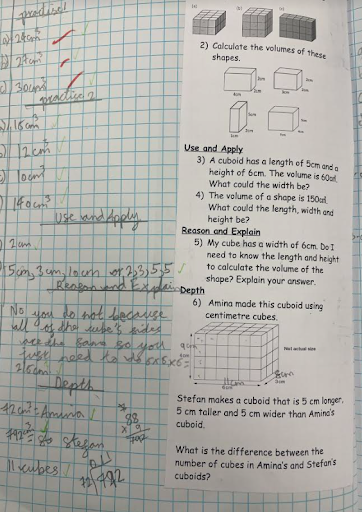 practise 1
a) 24cm³
b) 27cm³
c) 30cm³
practice 2
16cm³
12cm³
10cm³
140cm³
Use and Apply
2cm
5cm, 3cm, 10cm or 2,3,5,5
Reason and Explain
No you do not because
all of the cube's sides
are the same so you
just need to do 6x6x6=
216cm
Depth
72cm³ = Amina
792cm³
11 cubes
88
x 9
792
(a)
(b)
(c)
2) Calculate the volumes of these
shapes.
Use and Apply
3) A cuboid has a length of 5cm and a
height of 6cm. The volume is 60cm³.
What could the width be?
4) The volume of a shape is 150cm³.
What could the length, width and
height be?
Reason and Explain
5) My cube has a width of 6cm. Do I
need to know the length and height
to calculate the volume of the
shape? Explain your answer.
Depth
6) Amina made this cuboid using
centimetre cubes.
Not actual size
9cm
11cm
8cm
Stefan makes a cuboid that is 5 cm longer,
5 cm taller and 5 cm wider than Amina's
cuboid.
What is the difference between the
number of cubes in Amina's and Stefan's
cuboids?